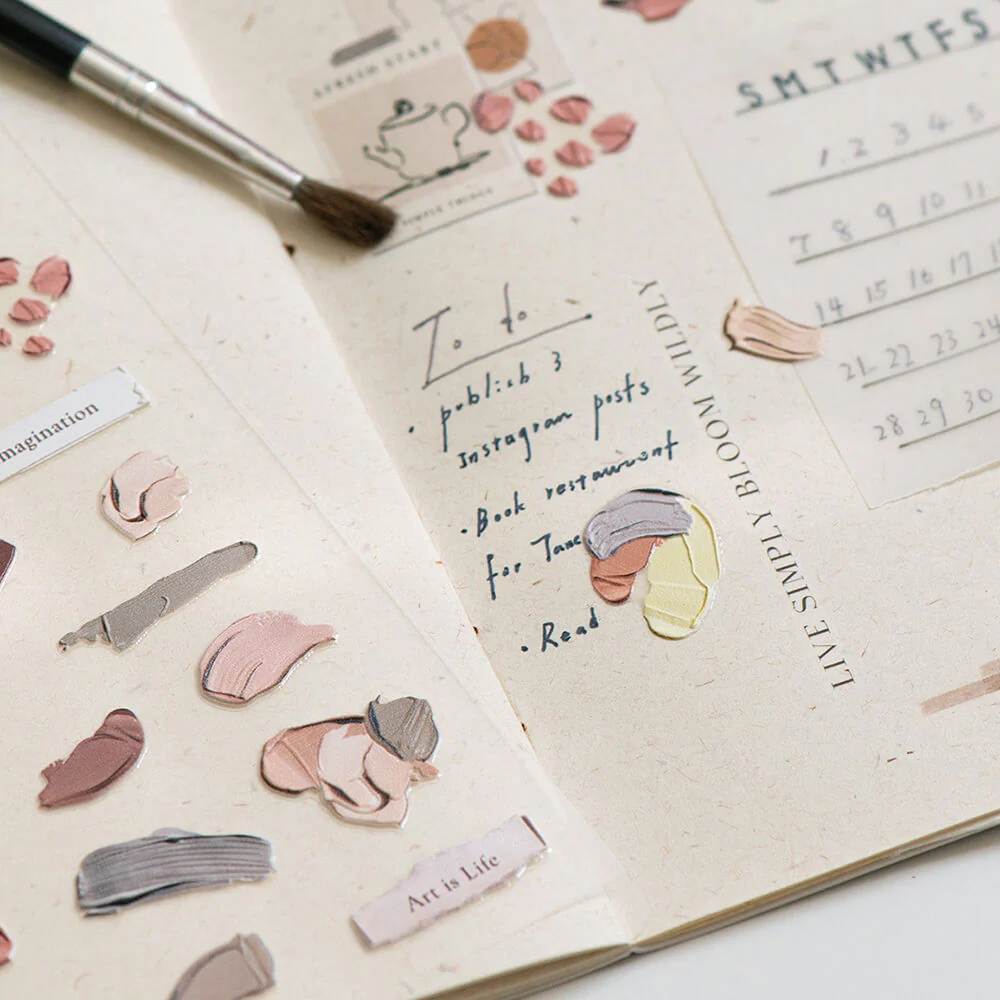 A FRESH START
SIMPLE THINGS
S M T W T F S
1 2 3 4 5
7 8 9 10 11
14 15 16 17
21 22 23 24
28 29 30
To do
• publish 3
Instagram posts
• Book restaurant
for Jane
• Read
LIVE SIMPLY BLOOM WILDLY
magination
Art is Life